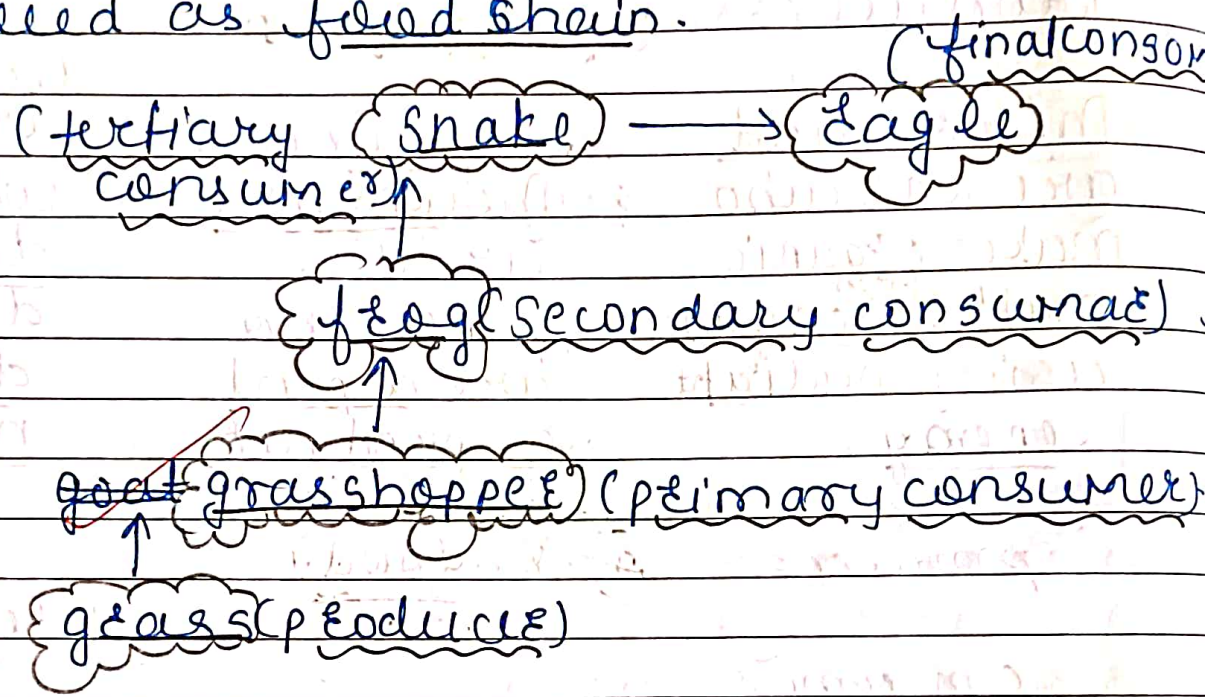 as food chain.
(finalconso
(tertiary snake → Eagle
consumer)
frog (secondary consumar)
goat grasshopper (primary consumer)
grass (producer)